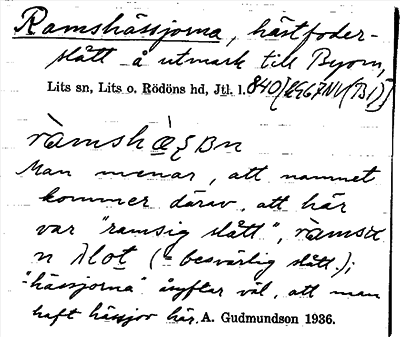 Ramshässjorna, hästfoder-
slått å utmark till Byom,
Lits sn, Lits o. Rödöns hd, Jtl. l. 840
ràmsh
Man menar, att namnet
kommer därav, att här
var "ramsig slått",
(= besvärlig slått);
"hässjorna" åsyftar väl, att man
haft hässjor här. A. Gudmundson 1936.